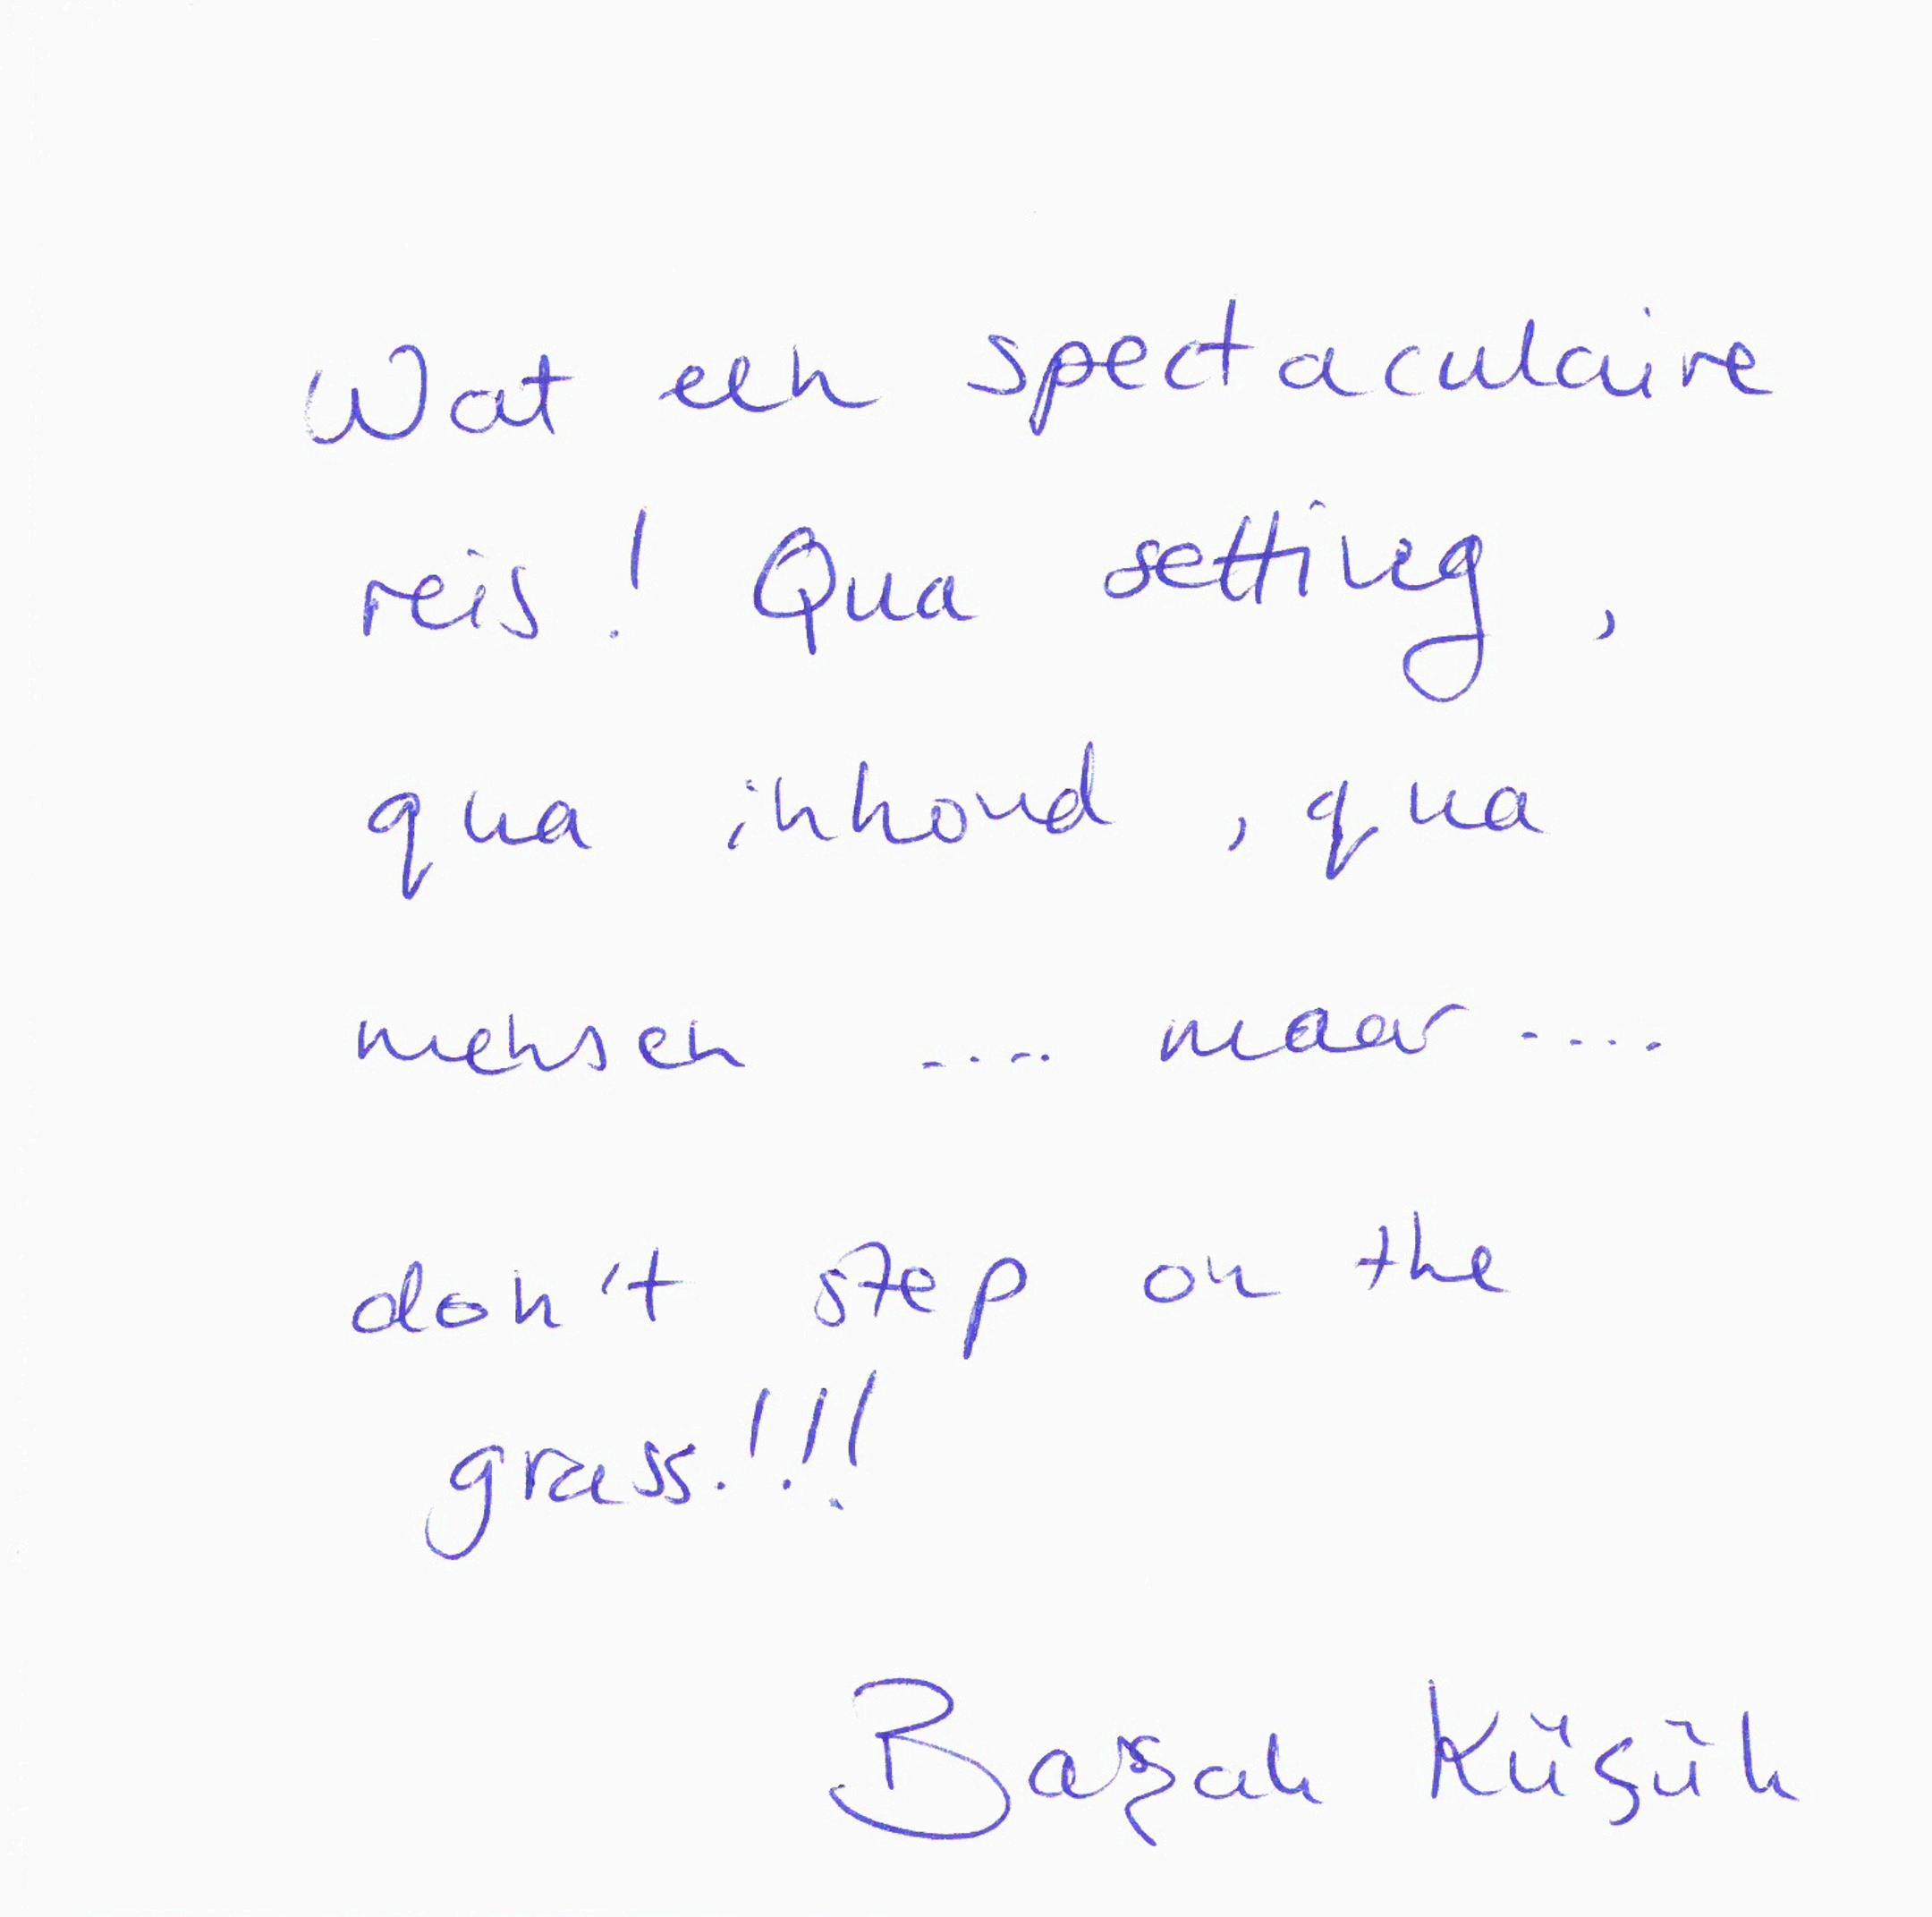 Wat een spectaculaire
reis! Qua setting,
qua inhoud, qua
mensen .... maar ....
don't step on the
grass!!!
Başak Küçük